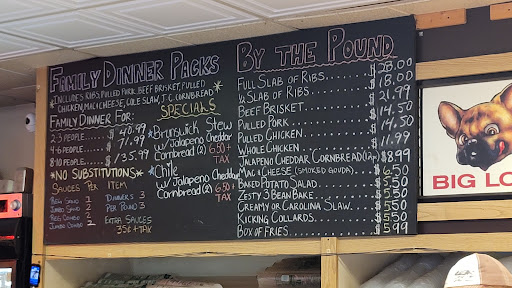 FAMILY DINNER PACKS
*INCLUDES RIBS, PULLED PORK, BEEF BRISKET, PULLED
CHICKEN, MAC & CHEESE, COLE SLAW, J.C. CORNBREAD*
FAMILY DINNER FOR:
2-3 PEOPLE..... $48.99
4-6 PEOPLE..... $91.99
8-10 PEOPLE... $135.99
*NO SUBSTITUTIONS*
SAUCES PER ITEM
REG SAND 1
JUMBO SAND 2
REG COMBO 2
JUMBO COMBO 2
DINNERS 3
PER POUND 3
EXTRA SAUCES
35¢ + TAX
SPECIALS
*BRUNSWICK STEW
W/ JALAPENO CHEDDAR
CORNBREAD (2) 6.50 +
TAX
*CHILE
W/ JALAPENO CHEDDAR
CORNBREAD (2) 6.50 +
TAX
BY THE POUND
FULL SLAB OF RIBS....... $28.00
½ SLAB OF RIBS....... $18.00
BEEF BRISKET....... $21.99
PULLED PORK....... $14.50
PULLED CHICKEN....... $14.50
WHOLE CHICKEN....... $11.99
JALAPENO CHEDDAR CORNBREAD $8.99
MAC & CHEESE (SMOKED GOUDA) $6.50
BAKED POTATO SALAD..... $5.50
ZESTY 3 BEAN BAKE....... $5.50
CREAMY OR CAROLINA SLAW. $5.50
KICKING COLLARDS....... $5.50
BOX OF FRIES....... $5.99
BIG LO